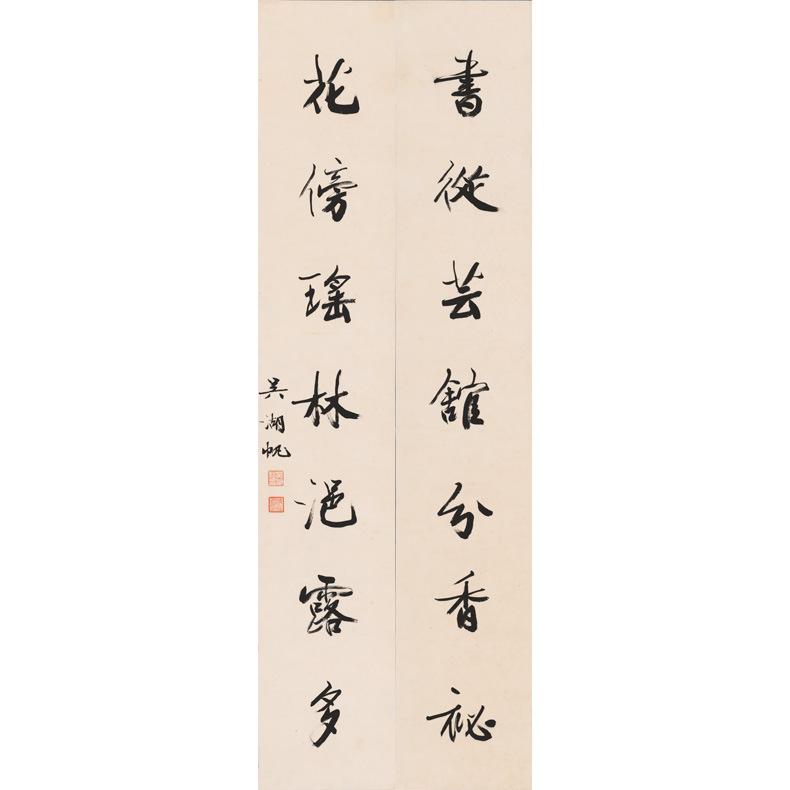 書從芸館分香祕
花傍瑤林浥露多
吳湖帆